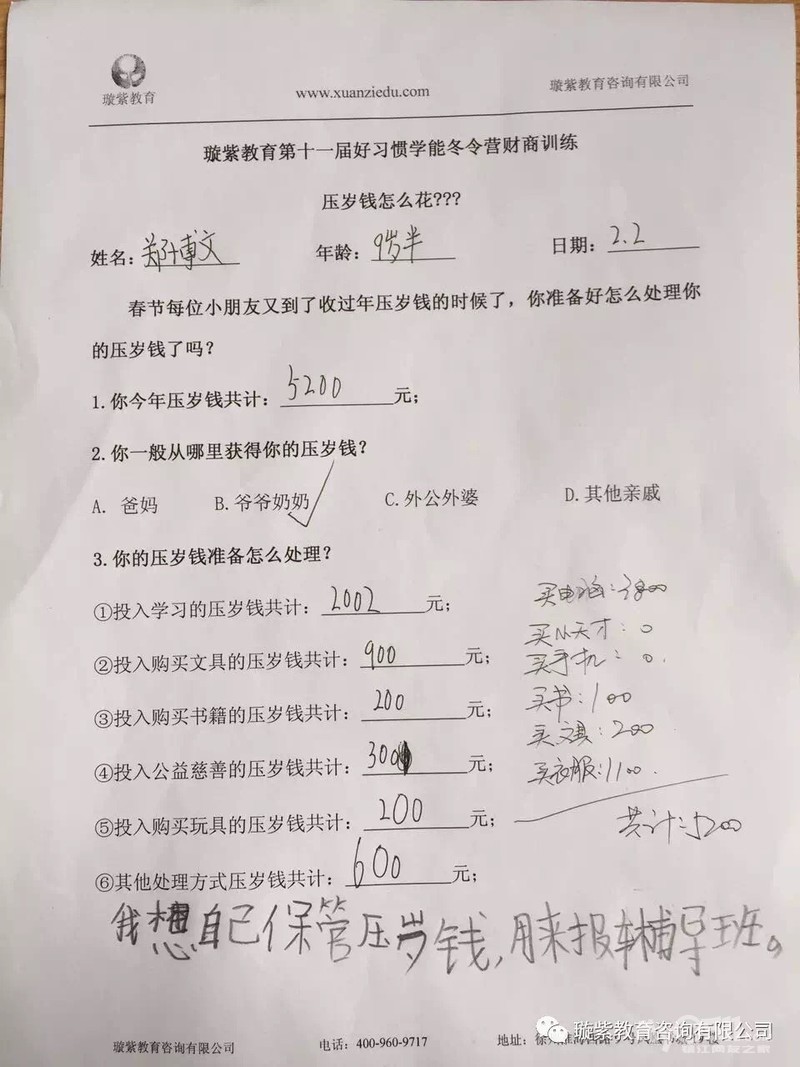 璇紫教育
www.xuanziedu.com
璇紫教育咨询有限公司
璇紫教育第十一届好习惯学能冬令营财商训练
压岁钱怎么花???
姓名:郑博文 年龄:9岁半 日期:2.2
春节每位小朋友又到了收过年压岁钱的时候了，你准备好怎么处理你
的压岁钱了吗？
1.你今年压岁钱共计：5200元;
2.你一般从哪里获得你的压岁钱？
A. 爸妈 B.爷爷奶奶 C.外公外婆 D.其他亲戚
3.你的压岁钱准备怎么处理？
①投入学习的压岁钱共计：2002元;
②投入购买文具的压岁钱共计：900元;
③投入购买书籍的压岁钱共计：200元;
④投入公益慈善的压岁钱共计：300元;
⑤投入购买玩具的压岁钱共计：200元;
⑥其他处理方式压岁钱共计：600元;
买电脑:3800
买小天才:0
买手机:0.
买书:100
买文具:200
买衣服:1100.
共计:5200
我想自己保管压岁钱,用来报辅导班。
璇紫教育咨询有限公司 电话：400-960-9717 地址：徐州淮海西路
璇紫教育咨询有限公司